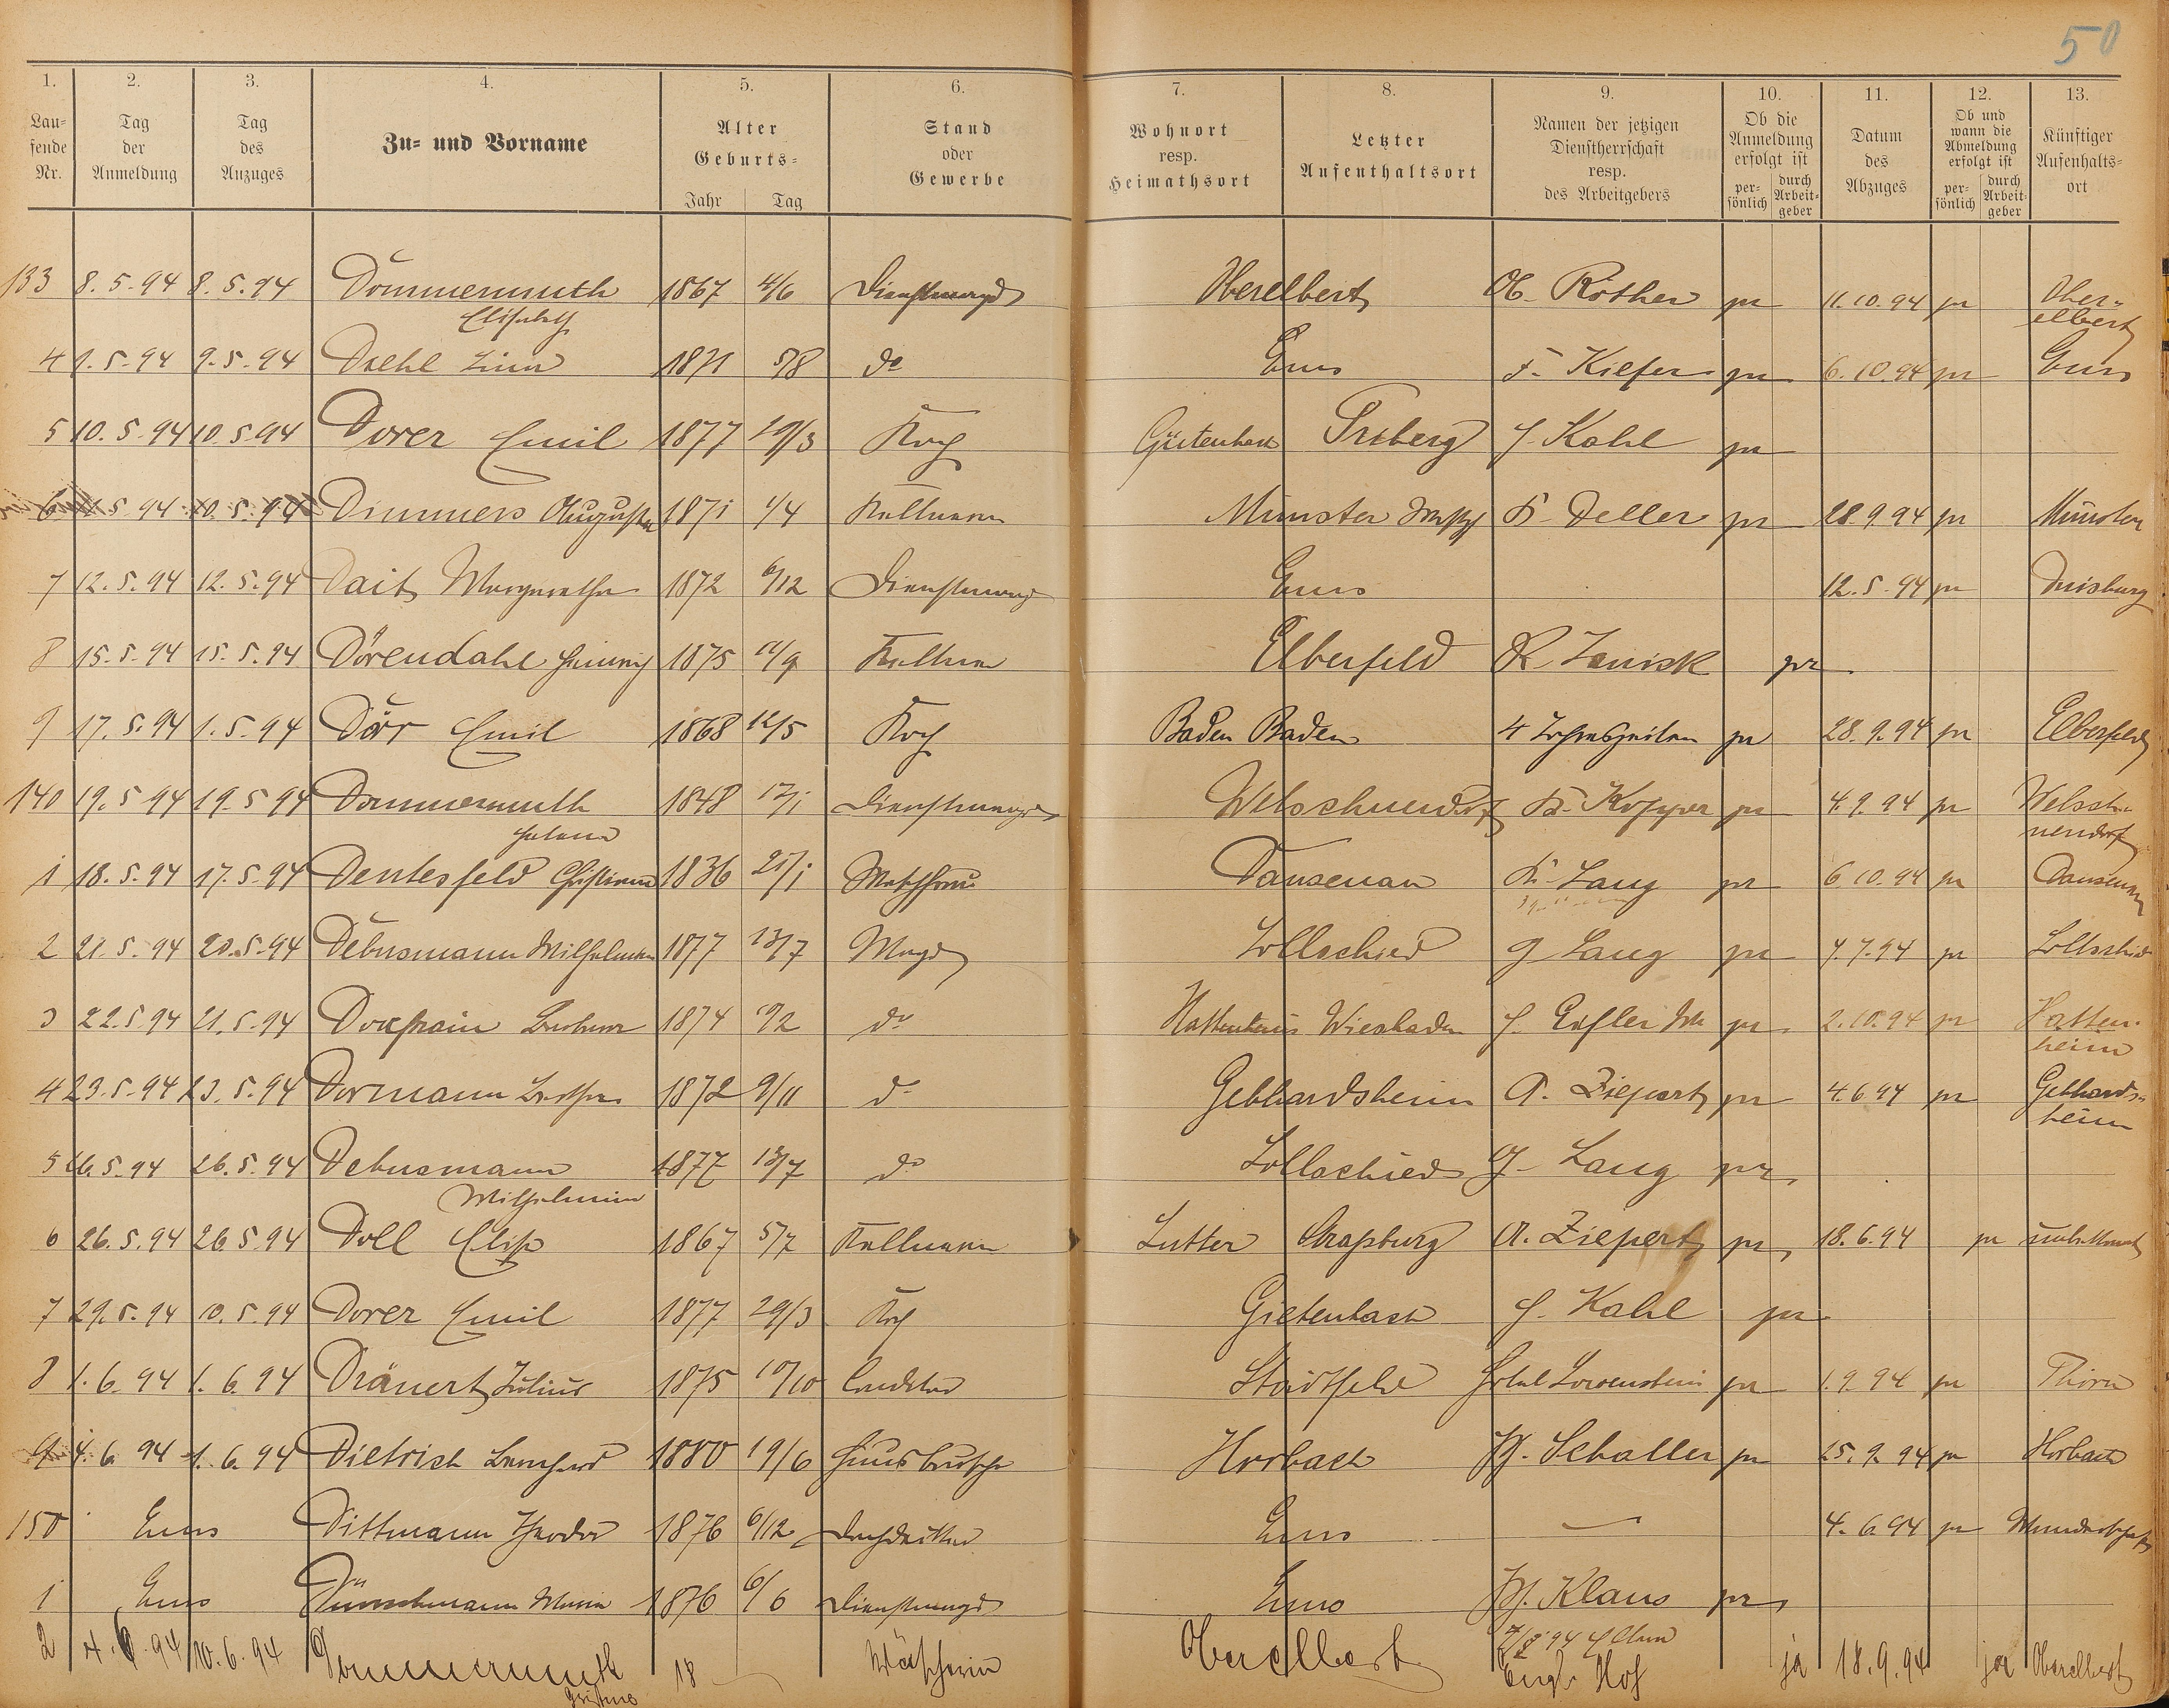 50
1. 2. 3. 4. 5. 6. 7. 8. 9. 10. 11. 12. 13.
Lau=
fende
Nr.
Tag
der
Anmeldung
Tag
des
Anzuges
Zu= und Vorname
Alter
Geburts=
Jahr Tag
Stand
oder
Gewerbe
Wohnort
resp.
Heimathsort
Letzter
Aufenthaltsort
Namen der jetzigen
Dienstherrschaft
resp.
des Arbeitgebers
Ob die
Anmeldung
erfolgt ist
per-
sönlich
durch
Arbeit-
geber
Datum
des
Abzuges
Ob und
wann die
Abmeldung
erfolgt ist
per-
sönlich
durch
Arbeit-
geber
Künftiger
Aufenhalts=
ort
133 8.5.94 8.5.94 Dommermuth 1867 4/6 Dienstmagd Oberelbert Röther pr 11.10.94 pr Ober-
Elisabeth elbert
4 9.5.94 9.5.94 Diehl Lina 1871 5/8 do Ems F. Kiefer pr 6.10.94 pr Ems
5 10.5.94 10.5.94 Dorer Emil 1877 29/3 Koch Gütenbach Triberg J. Kahl pr
6 11.5.94 10.5.94 Dimmers Auguste 1871 1/4 Kellnerin Münster K. Deller pr 28.9.94 pr Münster
7 12.5.94 12.5.94 Dait Margaretha 1872 6/12 Dienstmagd Ems 12.5.94 pr Duisburg
8 15.5.94 15.5.94 Dörendahl Heinrich 1875 11/9 Kellner Elberfeld R pr
9 17.5.94 1.5.94 Dörr Emil 1868 12/5 Koch Baden Baden 4 Jahreszeiten pr 28.9.94 pr Elberfeld
140 19.5.94 19.5.94 Dommermuth 1848 17/1 Dienstmagd Welschneudorf pr 4.9.94 pr Welsch-
Helena neudorf
1 18.5.94 17.5.94 Dentesfeld 1836 21/1 Waschfrau Dausenau K. Lang pr 6.10.94 pr Dausenau
2 21.5.94 20.5.94 Debusmann Wilhelmine 1877 13/7 Magd Lollschied G Lang pr 4.7.94 pr Lollschied
3 22.5.94 21.5.94 Barbara 1874 10/2 do Hattenheim Wiesbaden J. Eisler pr 2.10.94 pr Hatten-
heim
4 23.5.94 23.5.94 Dormann Bertha 1872 9/11 do Gebhardsheim A. Ziepert pr 4.6.94 pr Gebhards-
heim
5 26.5.94 26.5.94 Debusmann 1877 13/7 do Lollschied G. Lang pr
Wilhelmine
6 26.5.94 26.5.94 Doll Elise 1867 5/7 Kellnerin Lutter Straßburg A. Ziepert pr 18.6.94 pr unbekannt
7 29.5.94 10.5.94 Dorer Emil 1877 29/3 Koch Gietenbach J. Kahl pr
8 1.6.94 1.6.94 Dränert Julius 1875 10/10 Conditor Stadtfeld Hotel Loewenstein pr 1.9.94 pr Thorn
9 4.6.94 1.6.94 Dietrich Bernhard 1880 19/6 Hausbursche Horbach W. Schaller pr 25.9.94 pr Horbach
150 Ems Dittmann Theodor 1876 6/12 Dachdecker Ems — 4.6.94 pr Wanderschaft
1 Ems Dünschmann Maria 1876 6/6 Dienstmagd Ems W. Klaus pr
2 4.6.94 10.6.94 Dommermuth 18 — Wäscherin Oberelbert Engl. Hof ja 18.9.94 ja Oberelbert